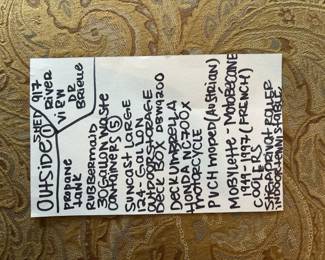 OUTSIDE ①
SHED 917
RIVER
VIEW
DR
BRIELLE
propane
tank
RUBBERMAID
30 Gallon WASTE
CONTAINERS ⑤
SUNCAST LARGE
124-GALLON
OUTDOOR STORAGE
DECK BOX DBW9200
DECK UMBRELLA
HONDA NC700X
MOTORCYCLE
PUCH MOPED (AUSTRIAN)
MOBYLETTE - MOTOBECANE
1949-1997 (FRENCH)
COOLERS